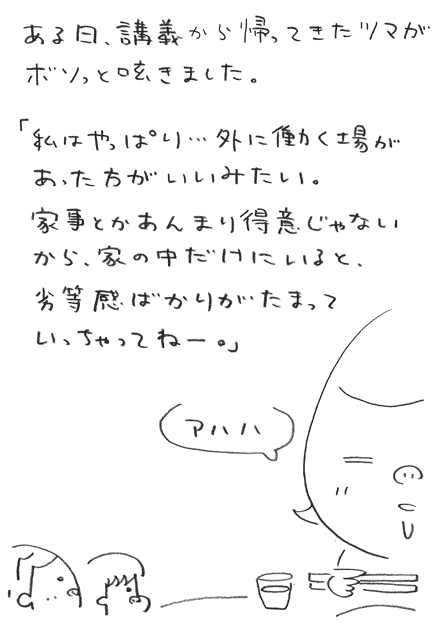 ある日、講義から帰ってきたツマが
ボソっと呟きました。
「私はやっぱり…外に働く場が
あった方がいいみたい。
家事とかあんまり得意じゃない
から、家の中だけにいると、
劣等感ばかりがたまって
いっちゃってねー。」
アハハ